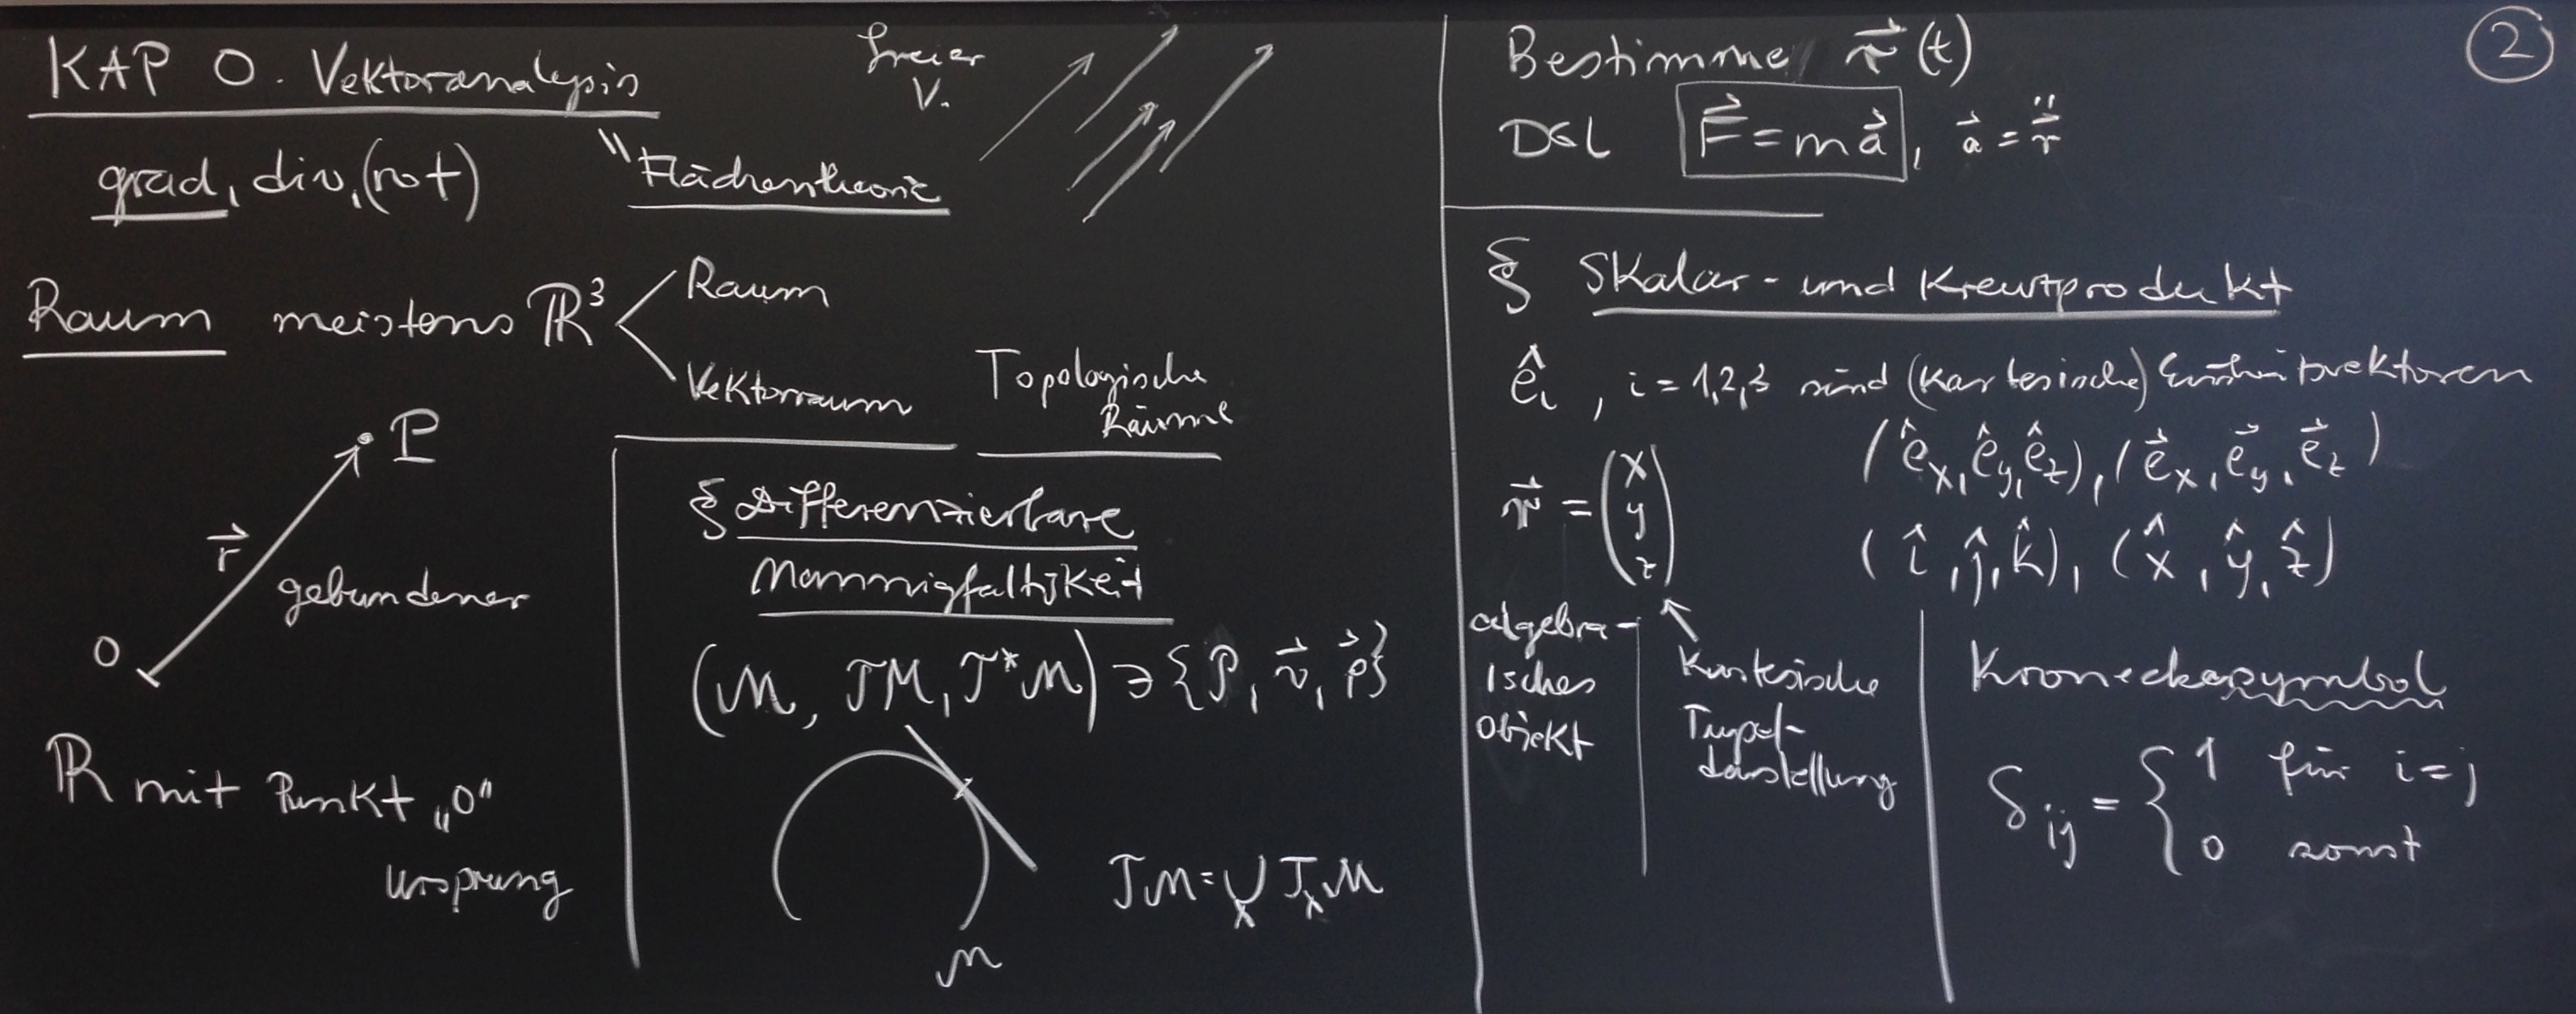 KAP 0. Vektoranalysis
grad, div, (rot)
"Flächentheorie
freier
V.
Raum meistens ℝ³
Raum
Vektorraum
Topologische
Räume
P
r⃗
gebundener
0
ℝ mit Punkt „0"
Ursprung
§ Differenzierbare
Mannigfaltigkeit
(M, TM, T*M) ∋ {P, v⃗, p⃗}
M
TM = ∪ₓ TₓM
2
Bestimme r⃗(t)
DGL F⃗ = m a⃗, a⃗ = r⃗̈
§ Skalar- und Kreuzprodukt
ê_i, i = 1,2,3 sind (kartesische) Einheitsvektoren
(ê_x, ê_y, ê_z), (e⃗_x, e⃗_y, e⃗_z)
r⃗ = (x y z)
(î, ĵ, k̂), (x̂, ŷ, ẑ)
algebra-
isches
Objekt
Kartesische
Tupel-
darstellung
Kroneckersymbol
δ_ij = { 1 für i=j
0 sonst